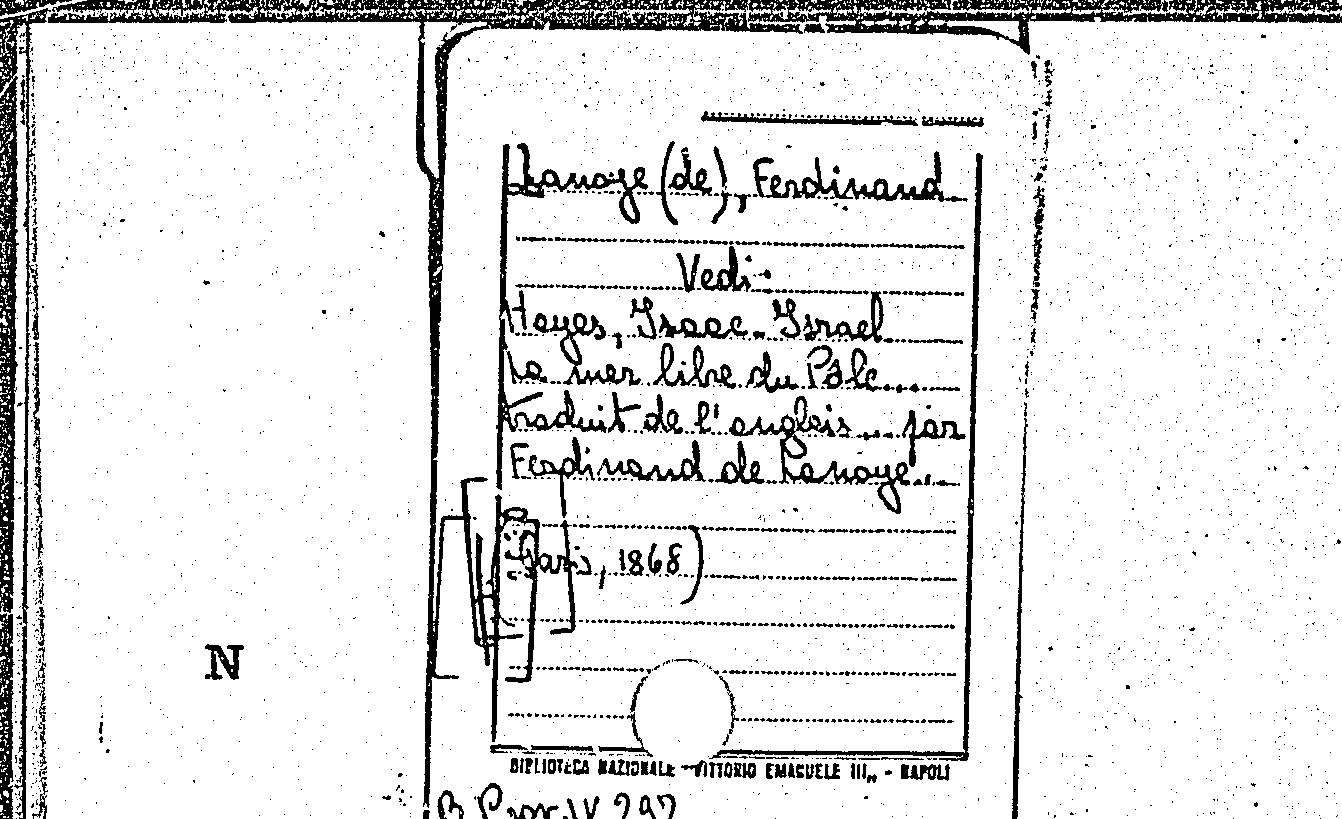 Lanoye (de), Ferdinand.
Vedi:
Hayes, Isaac. Israel
La mer libre du Pôle...
traduit de l'anglais... par
Ferdinand de Lanoye...
Paris, 1868)
N
BIBLIOTECA NAZIONALE "VITTORIO EMANUELE III„ - NAPOLI
B. Prov. IV 292